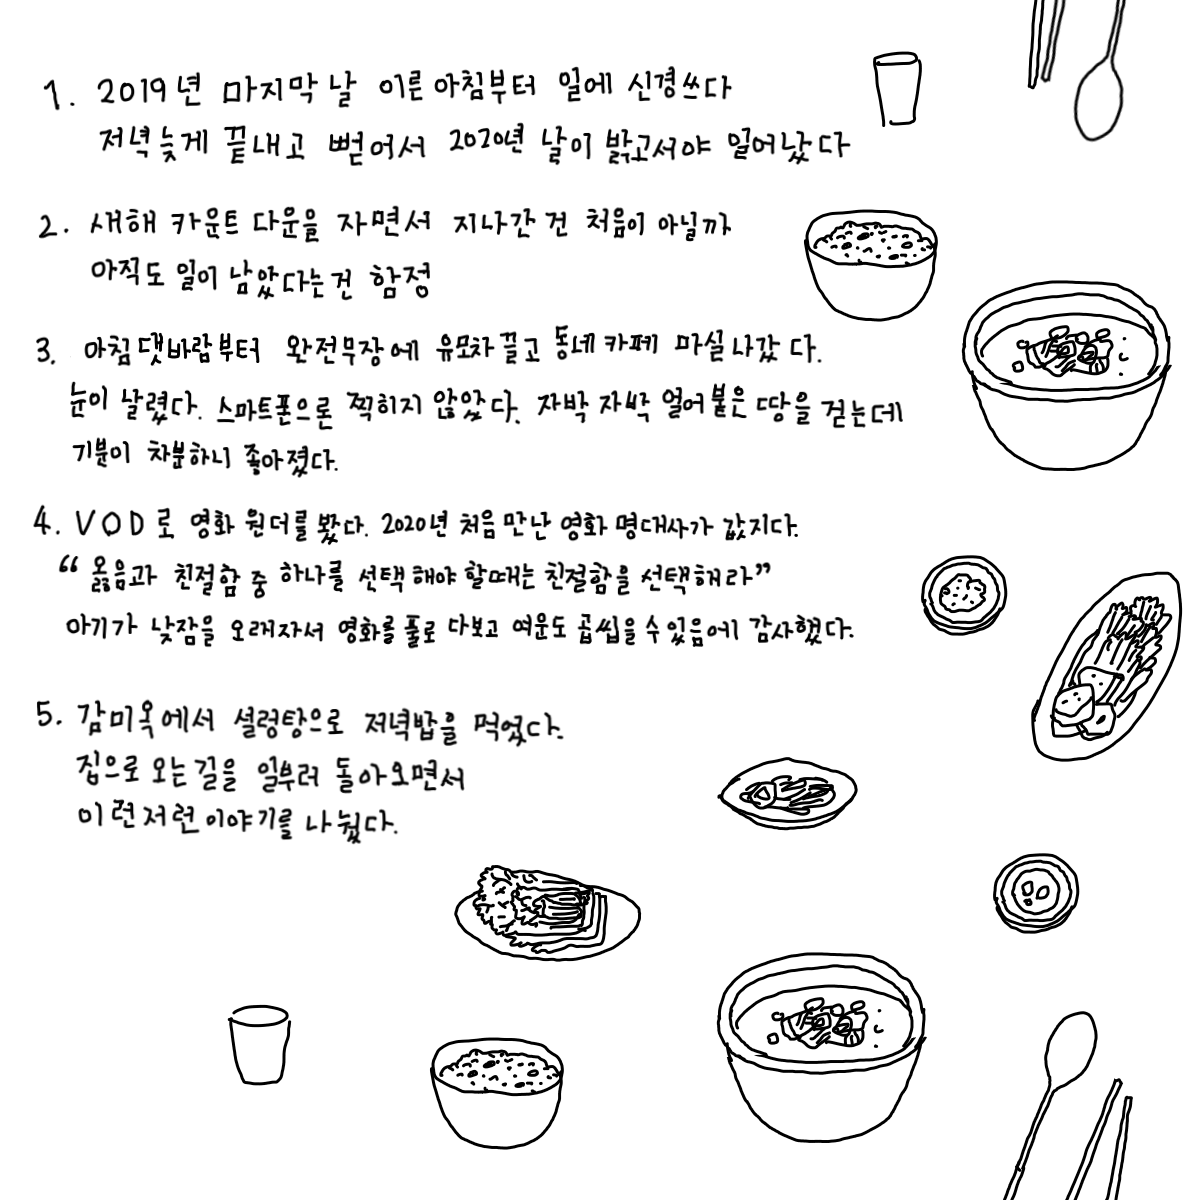 1. 2019년 마지막 날 이른 아침부터 일에 신경쓰다
저녁늦게 끝내고 뻗어서 2020년 날이 밝고서야 일어났다
2. 새해 카운트 다운을 자면서 지나간 건 처음이 아닐까
아직도 일이 남았다는건 함정
3. 아침 댓바람부터 완전무장에 유모차 끌고 동네 카페 마실 나갔다.
눈이 날렸다. 스마트폰으론 찍히지 않았다. 자박 자박 얼어붙은 땅을 걷는데
기분이 차분하니 좋아졌다.
4. VOD로 영화 원더를 봤다. 2020년 처음 만난 영화 명대사가 값지다.
“옳음과 친절함 중 하나를 선택해야 할때는 친절함을 선택해라”
아기가 낮잠을 오래자서 영화를 풀로 다보고 여운도 곱씹을 수 있음에 감사했다.
5. 감미옥에서 설렁탕으로 저녁밥을 먹었다.
집으로 오는길을 일부러 돌아오면서
이런저런 이야기를 나눴다.